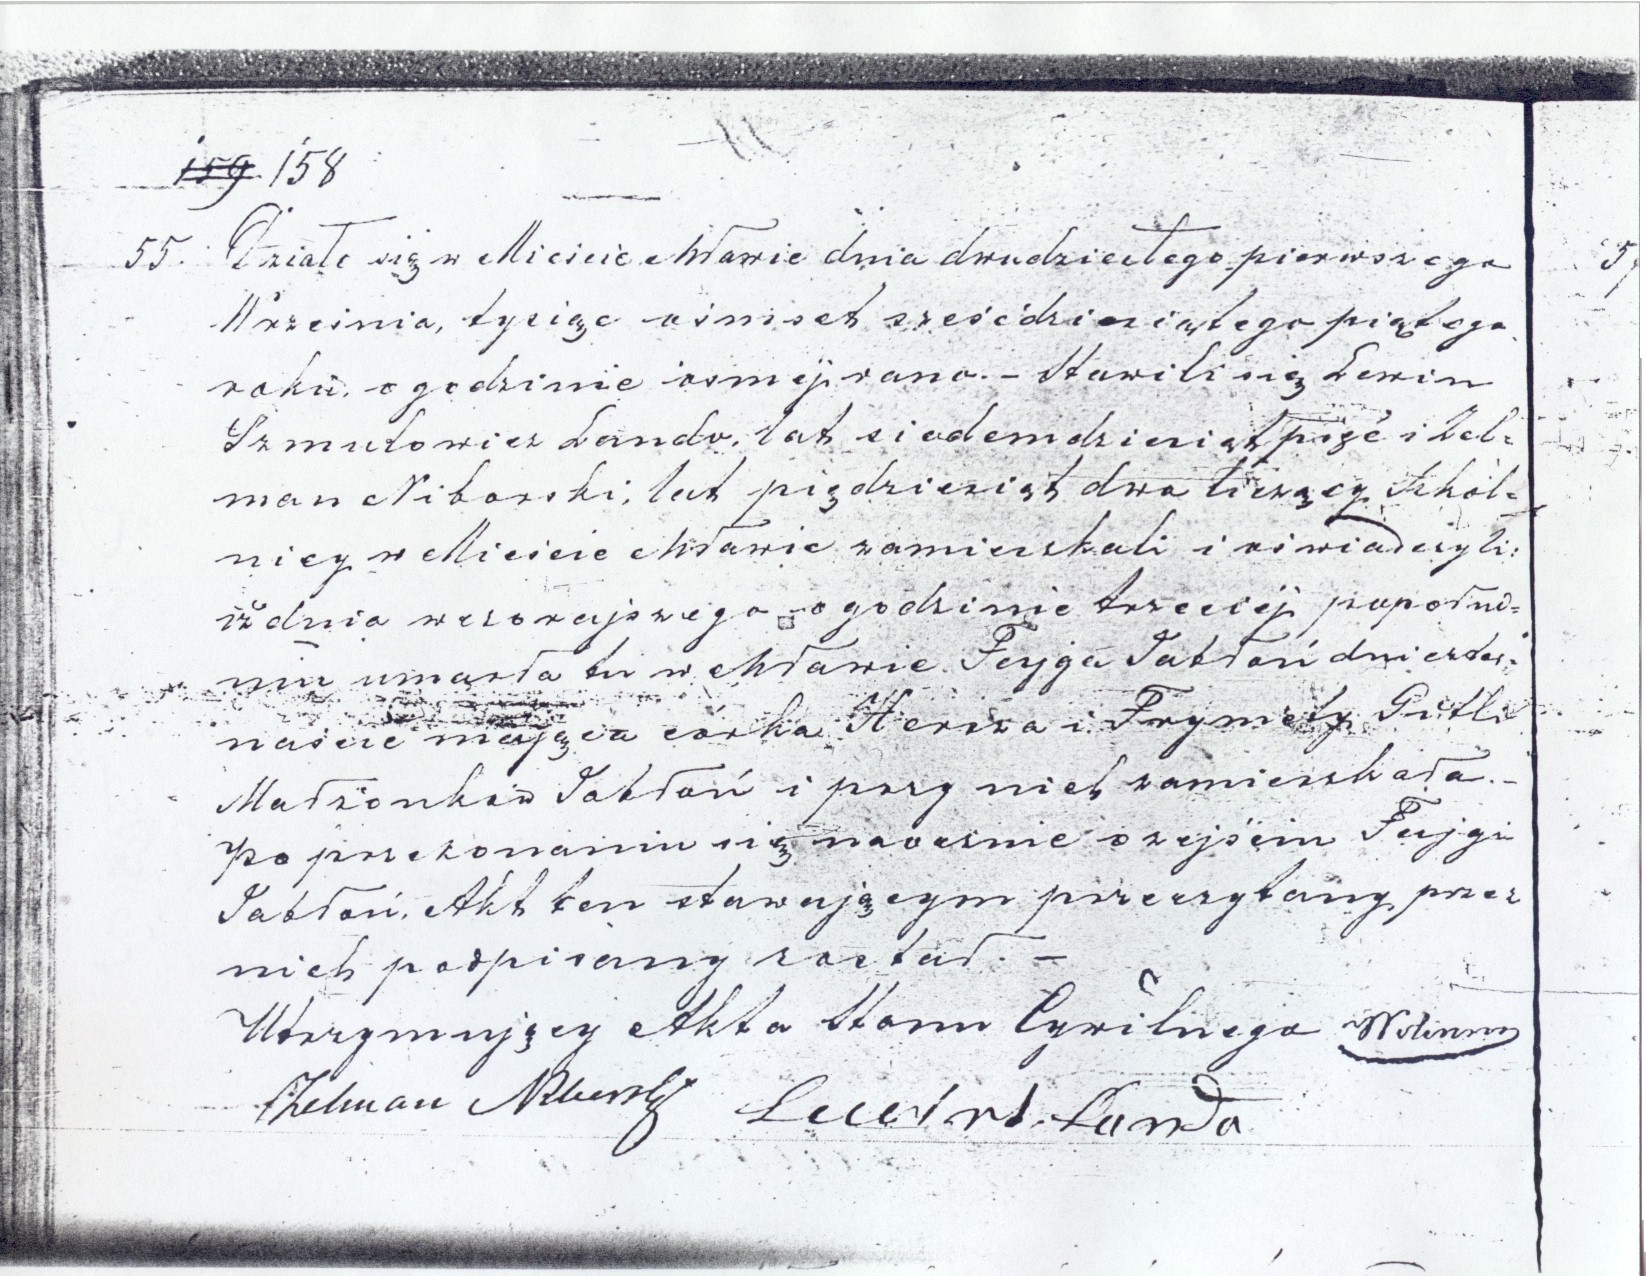 159 158
55. Działo się w Mieście Mławie dnia dwudziestego pierwszego
Września, tysiąc ośmset sześćdziesiątego piątego
roku, o godzinie ósmej rano. – Stawili się Lewin
Szmulowicz Lando, lat siedemdziesiąt pięć i Zel=
man Niborski, lat pięдziesiąt dwa liczący Szkól=
nicy w Mieście Mławie zamieszkali i oświadczyli:
iż dnia wczorajszego o godzinie trzeciej popołud=
niu umarła tu w Mławie Fejga Jabłoń dni
naście mająca córka Herszа i Frymety Gitli
Małżonków Jabłoń i przy nich zamieszkała. –
Po przekonaniu się naocznie o zejściu Fejgi
Jabłoń, Akt ten stawającym przeczytany przez
nich podpisany został. –
Utrzymujący Akta Stanu Cywilnego
Zelman Niborski Lewin Lando
5